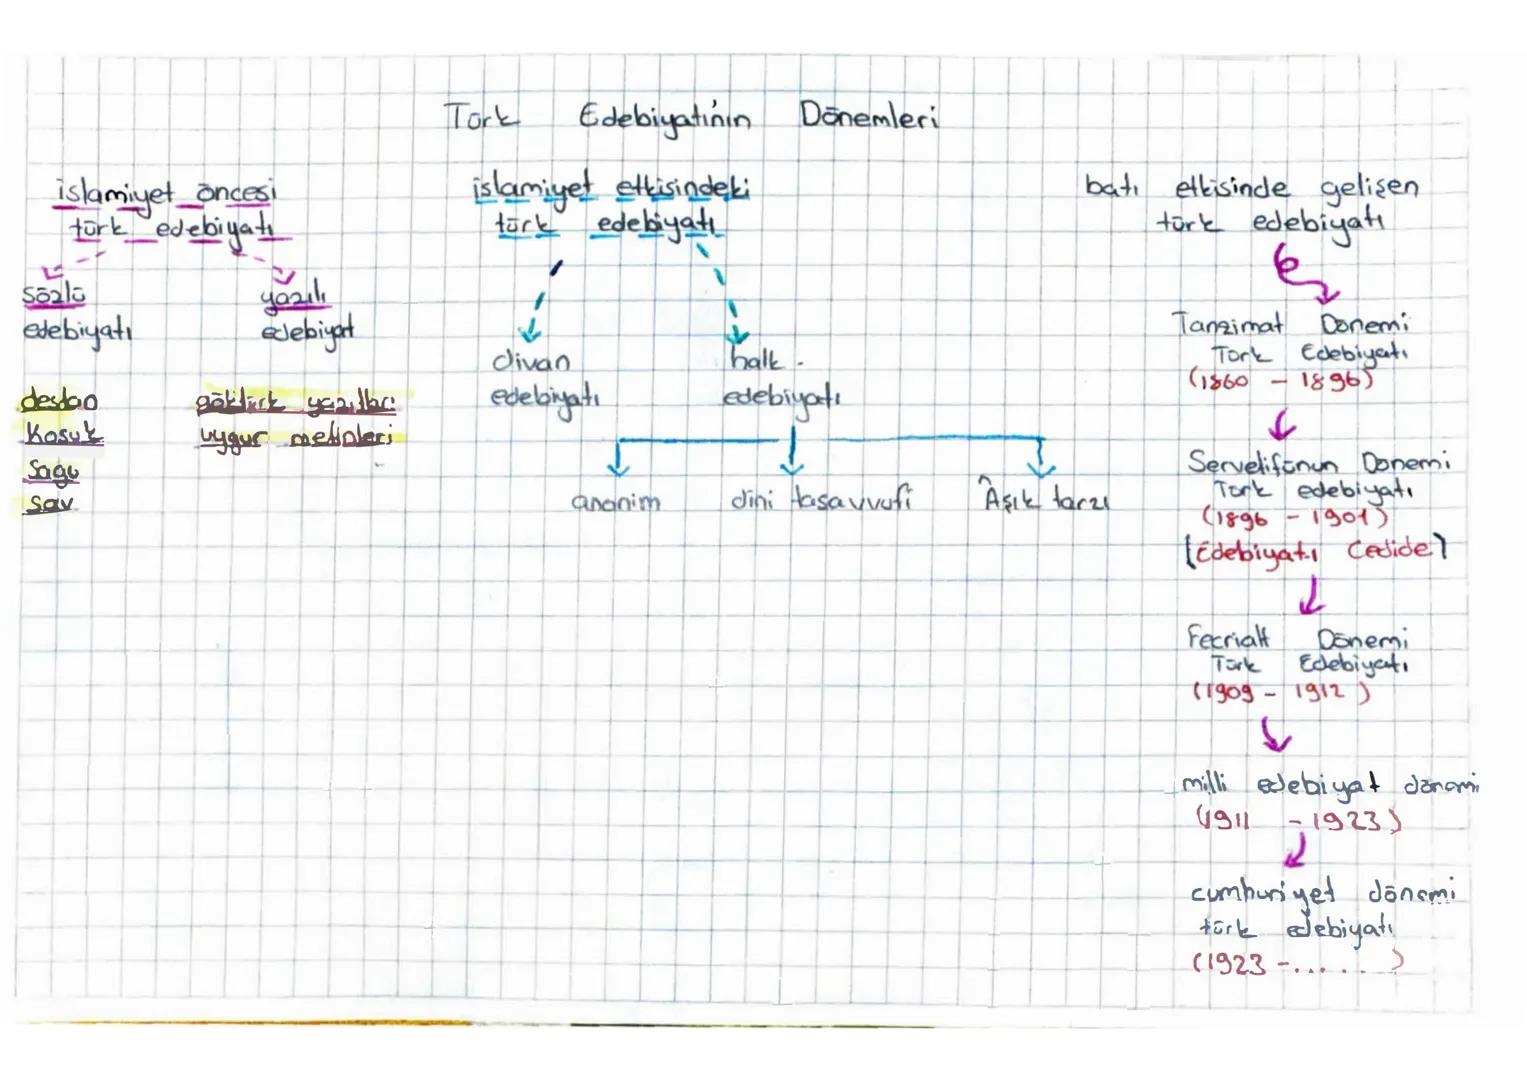 Türk Edebiyatı'nın Dönemleri
islamiyet öncesi
türk edebiyatı
sözlü
edebiyatı
yazılı
edebiyat
destan
Koşuk
Sagu
Sav
göktürk yazıtları
uygur metinleri
islamiyet etkisindeki
türk edebiyatı
divan
edebiyatı
halk
edebiyatı
anonim
dini tasavvufi
Âşık tarzı
batı etkisinde gelişen
türk edebiyatı
Tanzimat Dönemi
Türk Edebiyatı
(1860 - 1896)
Servetifünun Dönemi
Türk edebiyatı
(1896 - 1901)
(Edebiyat-ı Cedide)
Fecriati Dönemi
Türk Edebiyatı
(1909 - 1912)
milli edebiyat dönemi
(1911 - 1923)
cumhuriyet dönemi
türk edebiyatı
(1923 -......)